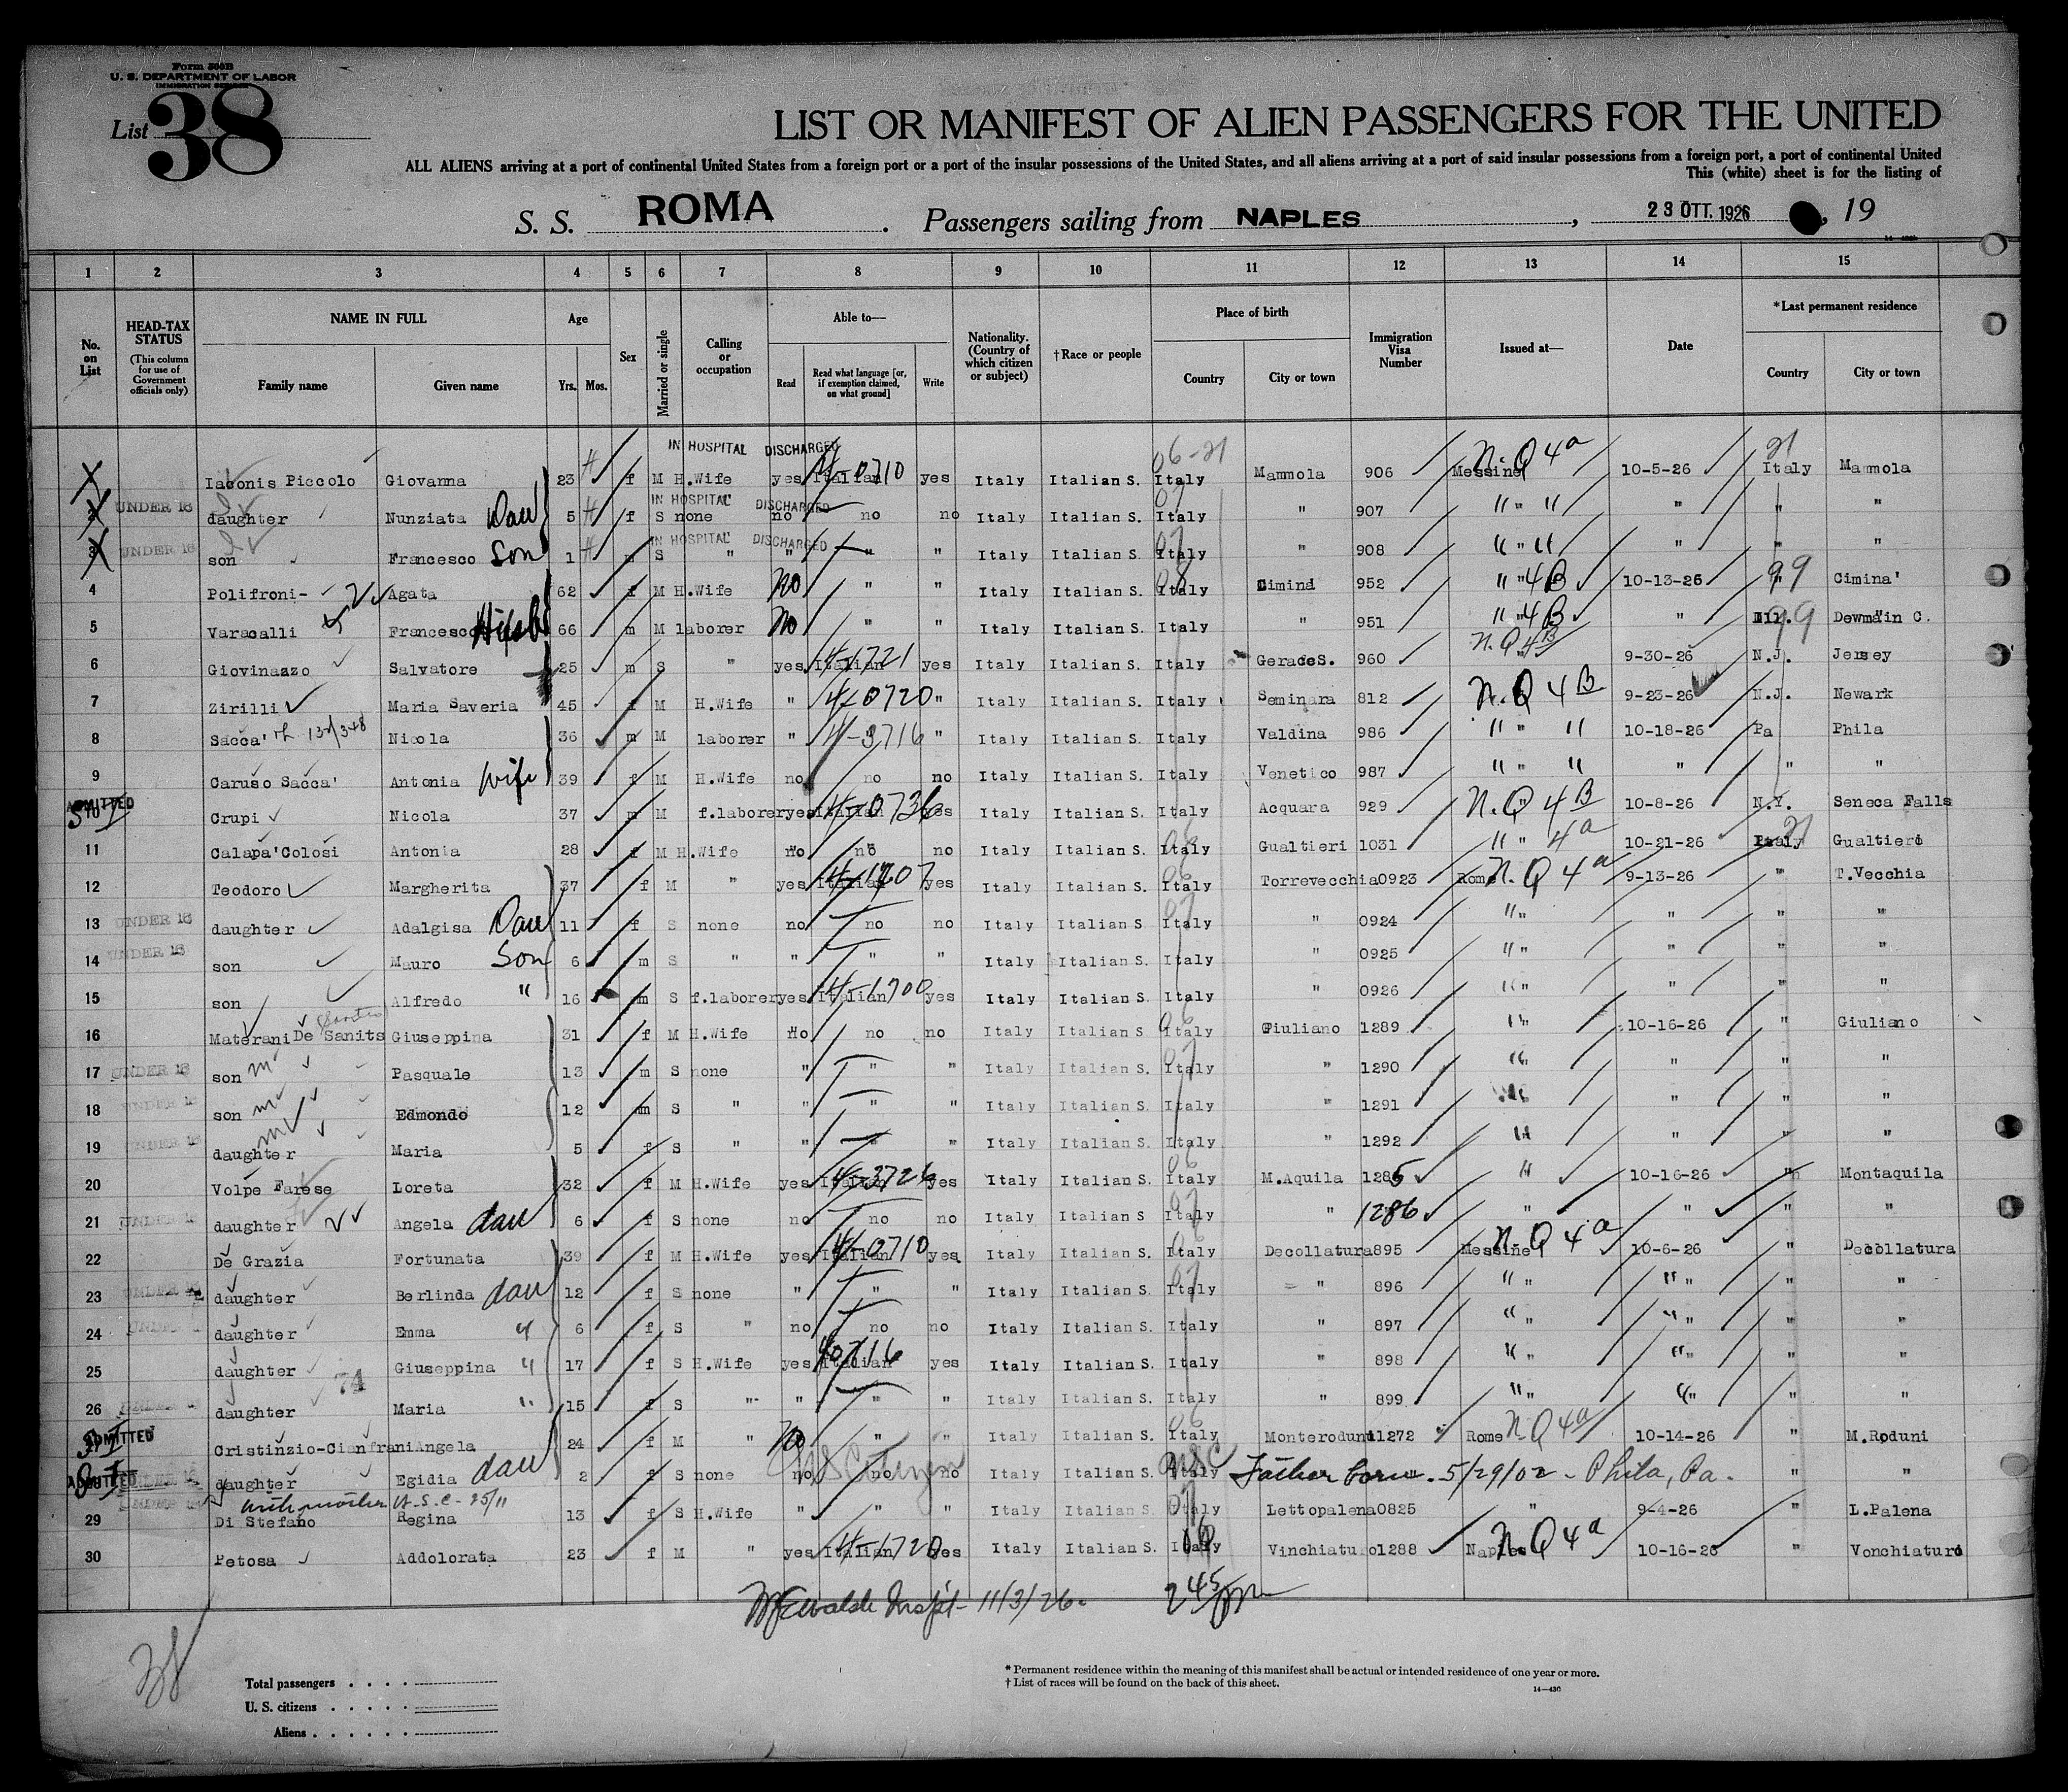 Form 500B
U. S. DEPARTMENT OF LABOR
IMMIGRATION SERVICE
List 38
LIST OR MANIFEST OF ALIEN PASSENGERS FOR THE UNITED
ALL ALIENS arriving at a port of continental United States from a foreign port or a port of the insular possessions of the United States, and all aliens arriving at a port of said insular possessions from a foreign port, a port of continental United
This (white) sheet is for the listing of
S. S. ROMA. Passengers sailing from NAPLES, 23 OTT. 1926, 19
1 2 3 4 5 6 7 8 9 10 11 12 13 14 15
No. on List
HEAD-TAX STATUS (This column for use of Government officials only)
NAME IN FULL Family name Given name
Age Yrs. Mos.
Sex
Married or single
Calling or occupation
Able to— Read Read what language [or, if exemption claimed, on what ground] Write
Nationality. (Country of which citizen or subject)
†Race or people
Place of birth Country City or town
Immigration Visa Number
Issued at—
Date
*Last permanent residence Country City or town
IN HOSPITAL DISCHARGED 06-21 N.Q 4a 21
Iaconis Piccolo Giovanna 23 f M H.Wife yes Italian 4-0710 yes Italy Italian S. Italy Mammola 906 Messina 10-5-26 Italy Mammola
IN HOSPITAL DISCHARGED
2 UNDER 16 daughter Nunziata Dau 5 f S none no no no Italy Italian S. Italy " 907 " " " " " "
IN HOSPITAL DISCHARGED
3 UNDER 16 son Francesco Son 1 m S " " " " Italy Italian S. Italy " 908 " " " " " "
4 Polifroni- Agata 62 f M H.Wife No " " Italy Italian S. Italy Cimina 952 " " 4B 10-13-26 " 99 Cimina'
5 Varacalli Francesco Husb 66 m M laborer No " " Italy Italian S. Italy " 951 " 4B " 99 Dewmain C.
6 Giovinazzo Salvatore 25 m S " yes Italian 4-1721 yes Italy Italian S. Italy Gerace S. 960 N.Q 4B 9-30-26 N.J. Jersey
7 Zirilli Maria Saveria 45 f M H.Wife " 4-0720 " Italy Italian S. Italy Seminara 812 N.Q 4B 9-23-26 N.J. Newark
8 Sacca' Nicola 36 m M laborer " 4-3716 " Italy Italian S. Italy Valdina 986 " " " 10-18-26 Pa Phila
9 Caruso Sacca' Antonia Wife 39 f M H.Wife no no no Italy Italian S. Italy Venetico 987 " " " " " "
ADMITTED
10 Crupi Nicola 37 m M f.laborer yes Italian 4-0736 yes Italy Italian S. Italy Acquara 929 N.Q 4B 10-8-26 N.Y. Seneca Falls
11 Calapa'Colosi Antonia 28 f M H.Wife no no no Italy Italian S. Italy Gualtieri 1031 " " 4a 10-21-26 Italy 21 Gualtieri
12 Teodoro Margherita 37 f M " yes Italian 4-1707 yes Italy Italian S. Italy Torrevecchia 0923 Rome N.Q 4a 9-13-26 " T.Vecchia
13 UNDER 16 daughter Adalgisa Dau 11 f S none no no no Italy Italian S. Italy " 0924 " " " " "
14 UNDER 16 son Mauro Son 6 m S " " " " Italy Italian S. Italy " 0925 " " " " "
15 son Alfredo " 16 m S f.laborer yes Italian 4-1700 yes Italy Italian S. Italy " 0926 " " " " "
16 Materani De Sanits Giuseppina 31 f M H.Wife no no no Italy Italian S. Italy Giuliano 1289 " 10-16-26 " Giuliano
17 UNDER 16 son Pasquale 13 m S none " " " Italy Italian S. Italy " 1290 " " " "
18 UNDER 16 son Edmondo 12 m S " " " " Italy Italian S. Italy " 1291 " " " "
19 UNDER 16 daughter Maria 5 f S " " " " Italy Italian S. Italy " 1292 " " " "
20 Volpe Farese Loreta 32 f M H.Wife yes Italian 4-3726 yes Italy Italian S. Italy M.Aquila 1285 " 10-16-26 " Montaquila
21 UNDER 16 daughter Angela dau 6 f S none no no no Italy Italian S. Italy " 1286 " " " "
22 De Grazia Fortunata 39 f M H.Wife yes Italian 4-0710 yes Italy Italian S. Italy Decollatura 895 Messina N.Q 4a 10-6-26 " Decollatura
23 UNDER 16 daughter Berlinda dau 12 f S none " " " Italy Italian S. Italy " 896 " " " " " "
24 UNDER 16 daughter Emma " 6 f S " no no no Italy Italian S. Italy " 897 " " " " " "
25 daughter Giuseppina " 17 f S H.Wife yes Italian 40716 yes Italy Italian S. Italy " 898 " " " " " "
74
26 UNDER 16 daughter Maria " 15 f S " " " " Italy Italian S. Italy " 899 " " " " " "
ADMITTED
Cristinzio-Cianfrani Angela 24 f M " No " " Italy Italian S. Italy Monteroduni 1272 Rome N.Q 4a 10-14-26 " M.Roduni
ADMITTED UNDER 16 daughter Egidia dau 2 f S none no no no US Citizen Italy Italian S. USC Father born. 5/29/02 - Phila, Pa. " "
with mother U.S.C - 25/11
29 Di Stefano Regina 13 f S H.Wife " " " Italy Italian S. Italy Lettopalena 0825 " 9-4-26 " L.Palena
30 Petosa Addolorata 23 f M " yes Italian 4-1720 yes Italy Italian S. Italy Vinchiaturo 1288 Naples N.Q 4a 10-16-26 " Vonchiaturo
Insp't- 11/3/26. 2 45 pm
38
Total passengers
U. S. citizens
Aliens
* Permanent residence within the meaning of this manifest shall be actual or intended residence of one year or more.
† List of races will be found on the back of this sheet.
14—430